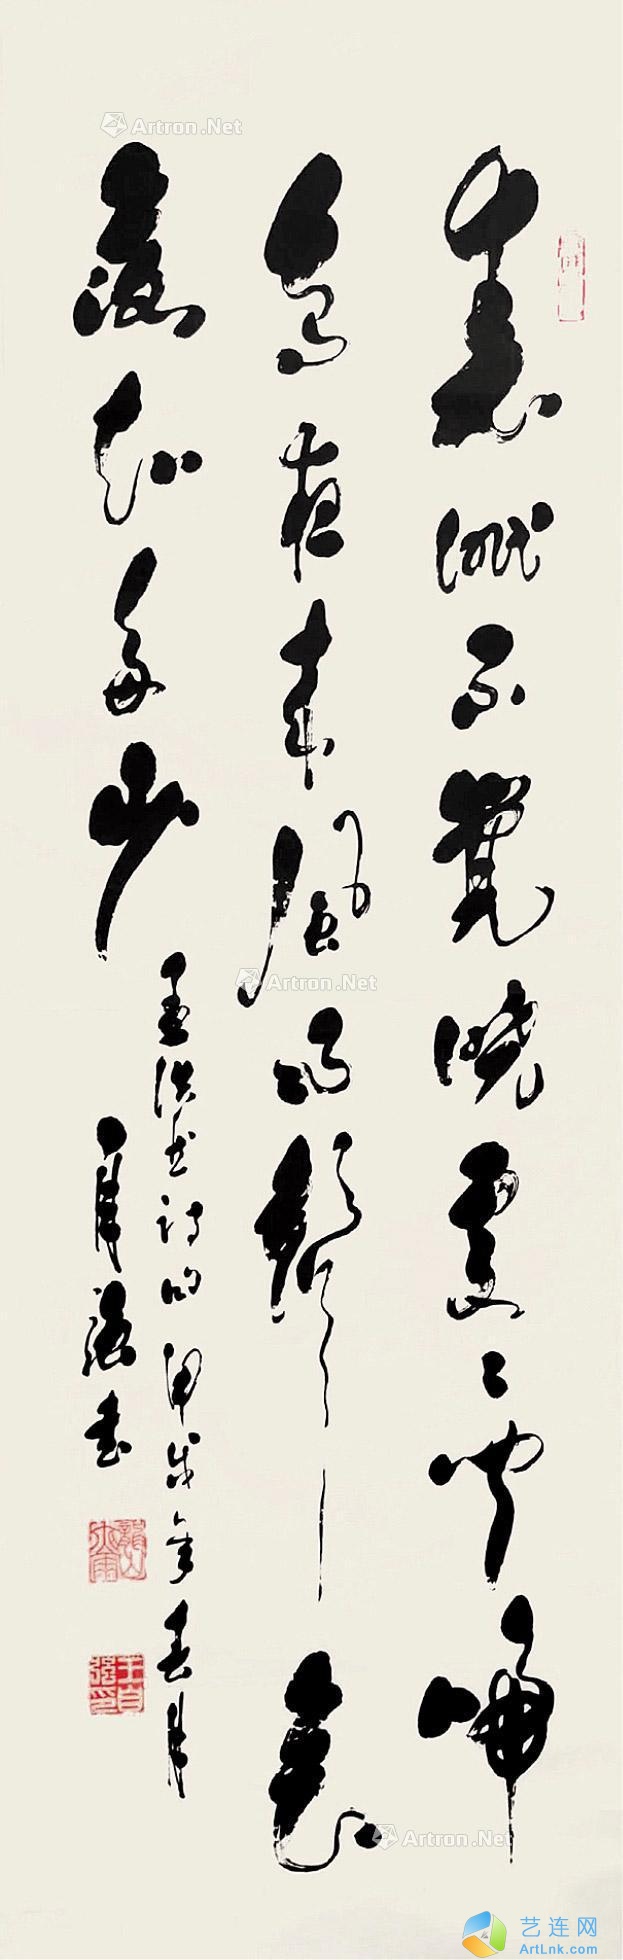 春眠不覺曉處々聞啼
鳥夜来風雨聲花
落知多少
孟浩然诗 甲戌年春月
自强书
王自强印
Artron.Net
Artron.Net
Artron.Net
艺连网
ArtLnk.com